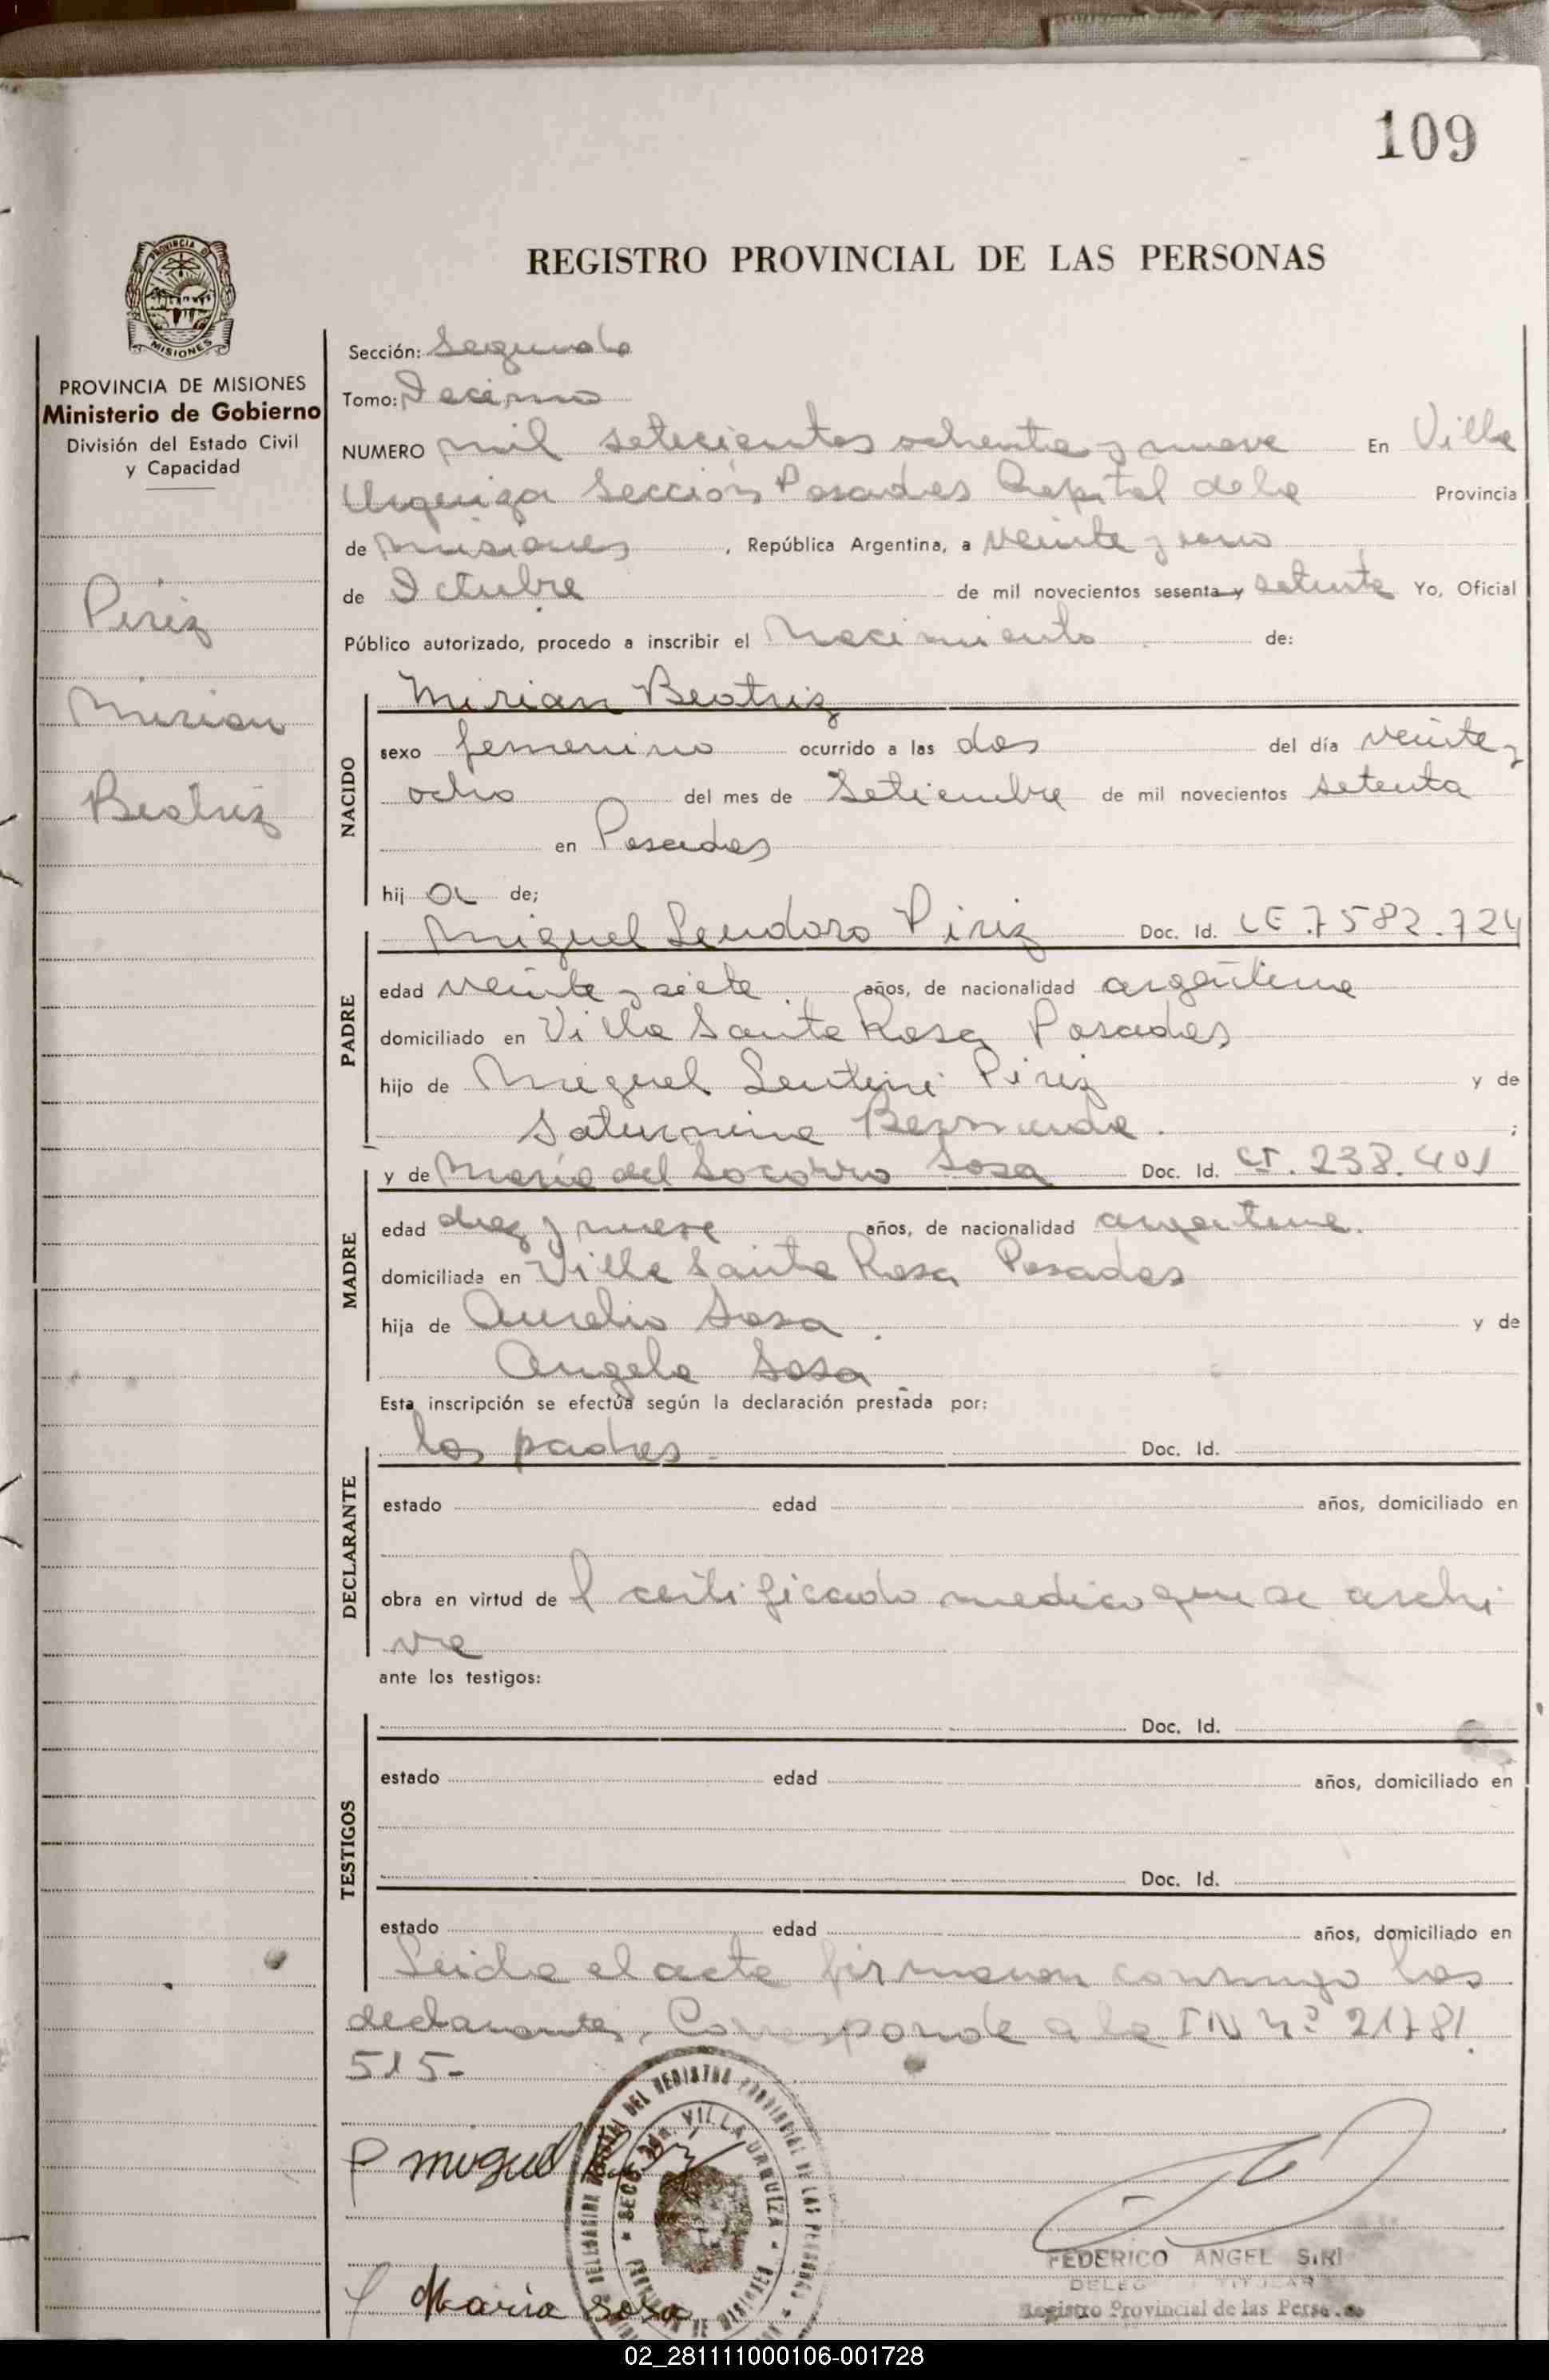 109
REGISTRO PROVINCIAL DE LAS PERSONAS
PROVINCIA DE MISIONES
PROVINCIA DE MISIONES
Ministerio de Gobierno
División del Estado Civil
y Capacidad
Piriz
Mirian
Beatriz
Sección: Segunda
Tomo: Decimo
NUMERO mil setecientos ochenta y nueve En Villa
Urquiza Sección Posadas Capital de la Provincia
de Misiones, República Argentina, a veinte y uno
de Octubre de mil novecientos sesenta y setenta Yo, Oficial
Público autorizado, procedo a inscribir el Nacimiento de:
NACIDO
Mirian Beatriz
sexo femenino ocurrido a las dos del día veinte y
ocho del mes de Setiembre de mil novecientos setenta
en Posadas
hij a de;
PADRE
Miguel Leudoro Piriz Doc. Id. LE.7582.724
edad veinte y siete años, de nacionalidad argentina
domiciliado en Villa Santa Rosa Posadas
hijo de Miguel Piriz y de
Saturnina ;
MADRE
y de Maria del Socorro Sosa Doc. Id. CI. 238.401
edad diez y nueve años, de nacionalidad argentina.
domiciliada en Villa Santa Rosa Posadas
hija de Aurelio Sosa. y de
Angela Sosa
Esta inscripción se efectúa según la declaración prestada por:
DECLARANTE
los padres - Doc. Id.
estado edad años, domiciliado en
obra en virtud de l certificado medico que se archi
va
ante los testigos:
TESTIGOS
Doc. Id.
estado edad años, domiciliado en
Doc. Id.
estado edad años, domiciliado en
Leida el acta firmaron conmigo los
declarantes, Corresponde a la IN Nº 21781
515-
P miguel Piriz
VILLA URQUIZA
María sosa
FEDERICO ANGEL SIRI
DELEG TITULAR
Registro Provincial de las Personas
02_281111000106-001728